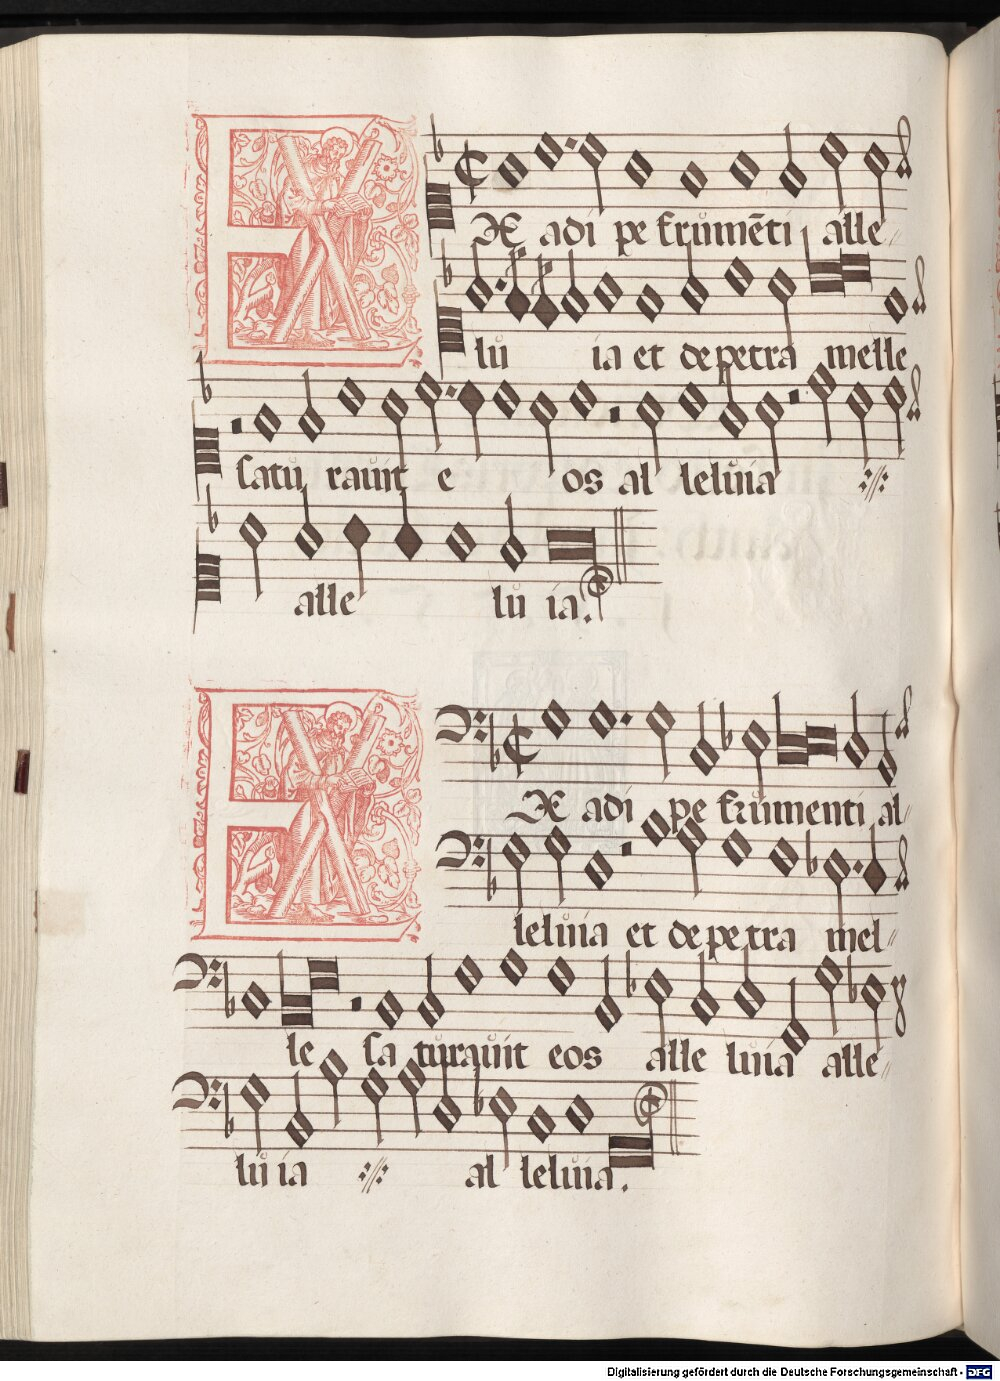 EX adi pe frumēti alle
lu ia et de petra melle
satu rauit e os al leluia
alle lu ia.
EX adi pe frumenti al
leluia et de petra mel
le sa turauit eos alle luia alle
lu ia al leluia.
Digitalisierung gefördert durch die Deutsche Forschungsgemeinschaft - DFG